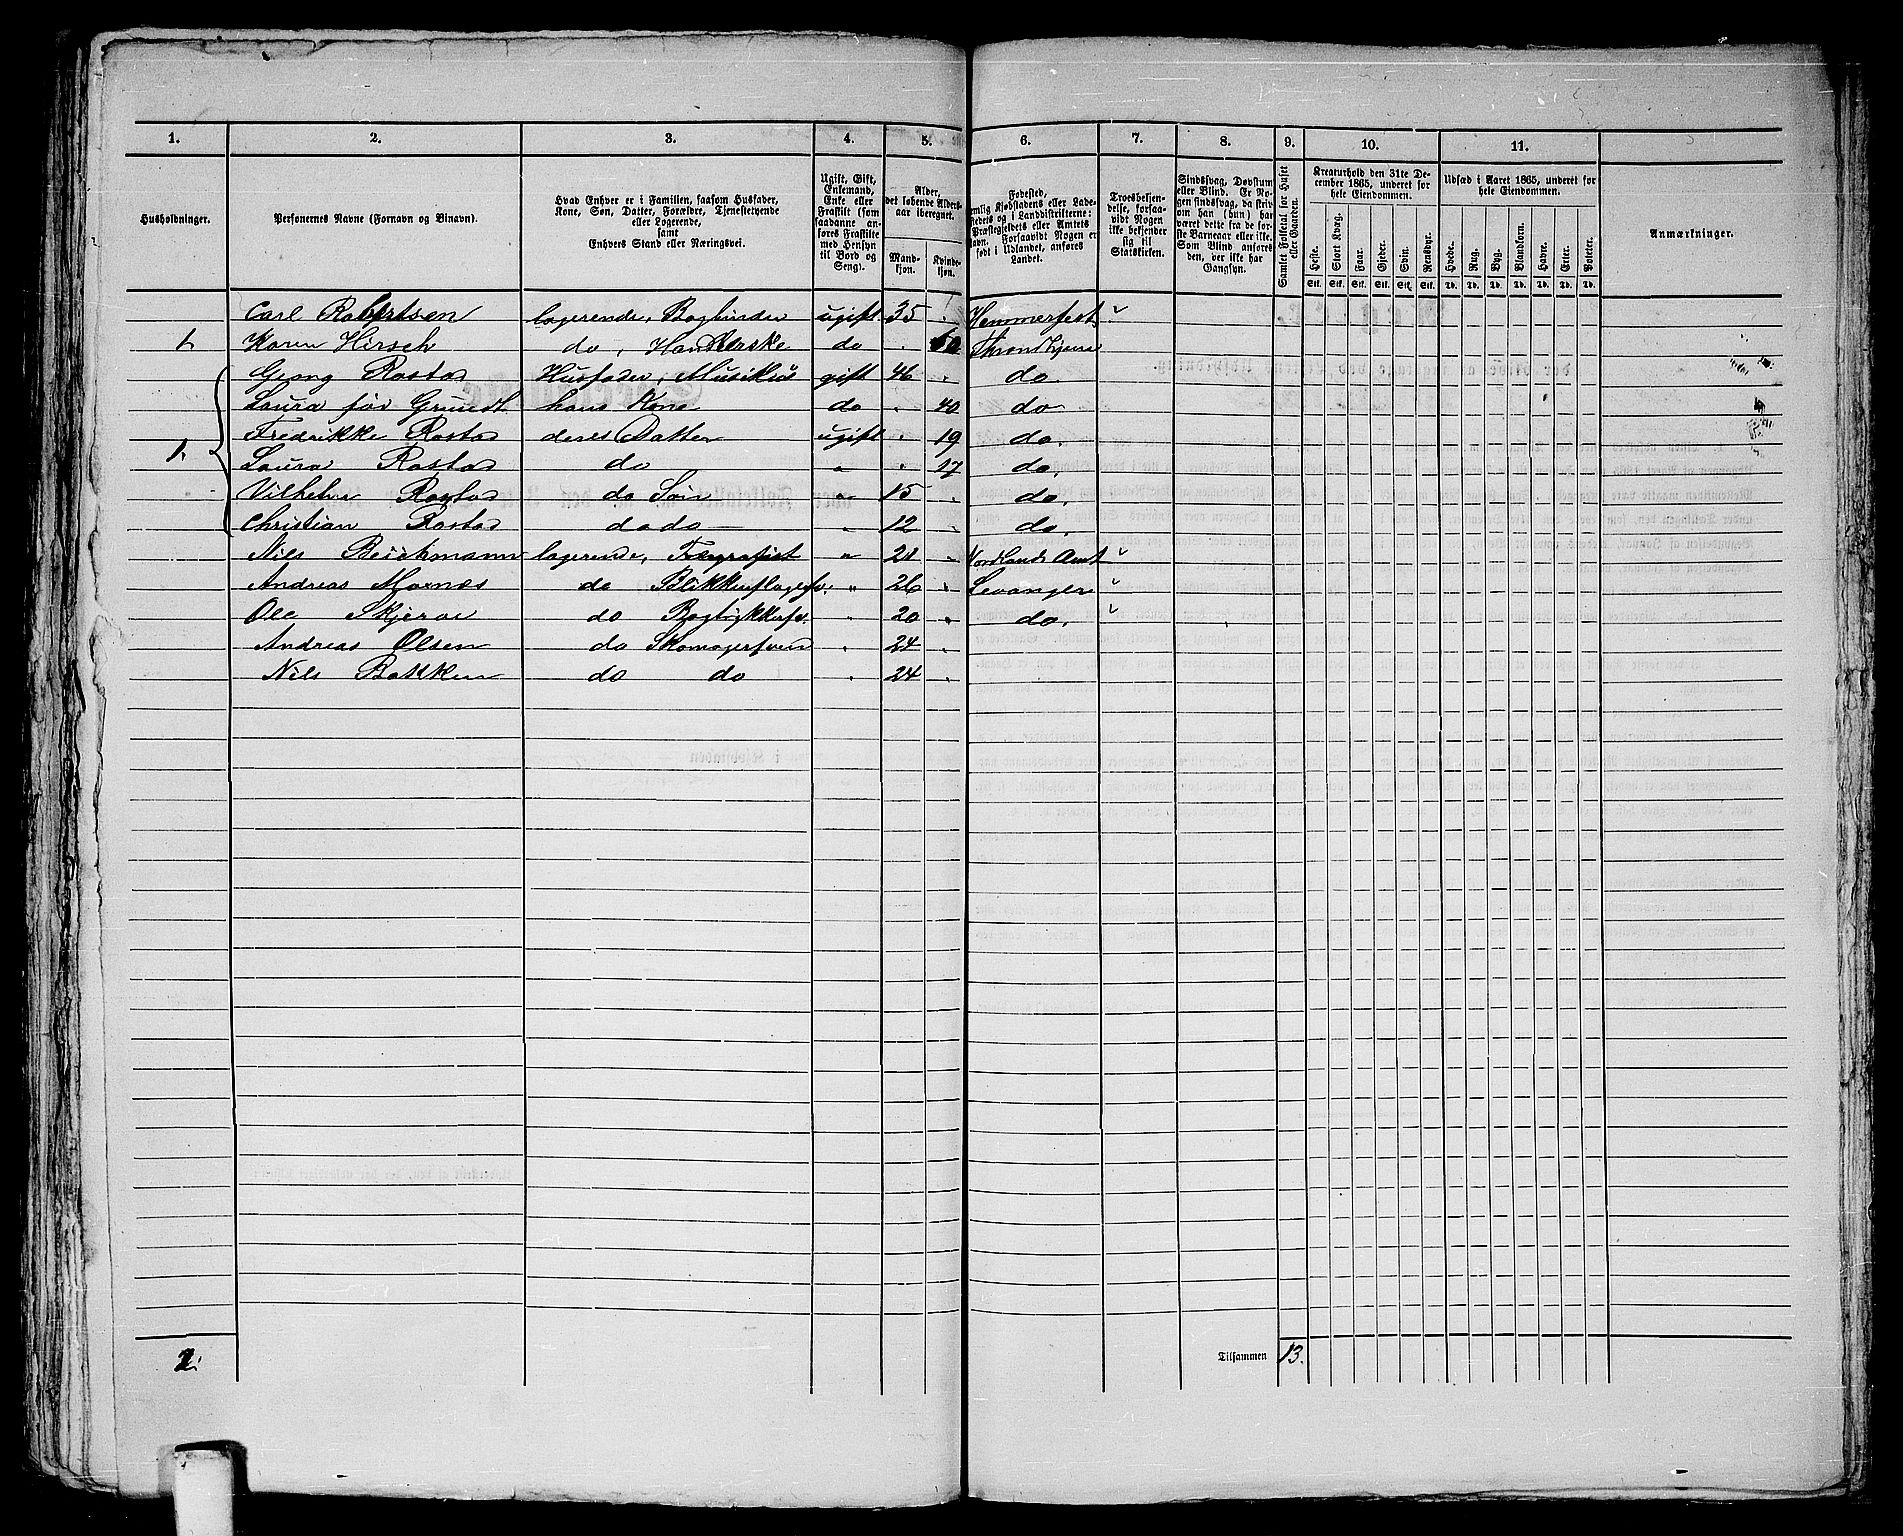 1. 2. 3. 4. 5. 6. 7. 8. 9. 10. 11.
Husholdninger.
Personernes Navne (Fornavn og Binavn).
Hvad Enhver er i Familien, saasom Husfader, Kone, Søn, Datter, Forældre, Tjenestetyende eller Logerende, samt Enhvers Stand eller Næringsvei.
Ugift, Gift, Enkemand, Enke eller Fraskilt (som saadanne anføres Fraskilte med Hensyn til Bord og Seng).
Alder, det løbende Alders-aar iberegnet.
Mand-kjøn. Kvinde-kjøn.
Fødested, nemlig Kjøbstadens eller Ladestedets og i Landdistrikterne: Præstegjeldets eller Amtets Navn. Forsaavidt Nogen er født i Udlandet, anføres Landet.
Troesbekjendelse, forsaavidt Nogen ikke bekjender sig til Statskirken.
Sindssvag, Døvstum eller Blind. Er Nogen sindssvag, da skrives om han (hun) har været dette fra de første Barneaar eller ikke. Som Blind anføres den, der ikke har Gangsyn.
Samlet Folketal for Huset eller Gaarden.
Kreaturhold den 31te December 1865, underet for hele Eiendommen.
Heste. Stort Kvæg. Faar. Gjeder. Svin. Rensdyr.
Udsæd i Aaret 1865, underet for hele Eiendommen.
Hvede. Rug. Byg. Blandkorn. Havre. Erter. Poteter.
Anmærkninger.
Stk. Stk. Stk. Stk. Stk. Stk. Td. Td. Td. Td. Td. Td. Td.
Carl Robertsen logerende, Bogbinder ugift 35 Hammerfest
1. Karen Hirsch do, Handlerske do 50 Throndhjem
Georg Rostad Husfader, Musikus gift 46 do
Laura før Grundt hans Kone do 40 do
Fredrikke Rostad deres Datter ugift 19 do.
1. Laura Rostad do 17 do.
Vilhelm Rostad do Søn 15 do.
Christian Rostad do do 12 do.
Nils logerende, Telegrafist 21 Nordlands Amt
Andreas Moxnes do 26 Levanger
Ole Skjerve do 20 do.
Andreas Olsen do Skomagersvend 24
Nils Bakken do do 24
2. Tilsammen 13.